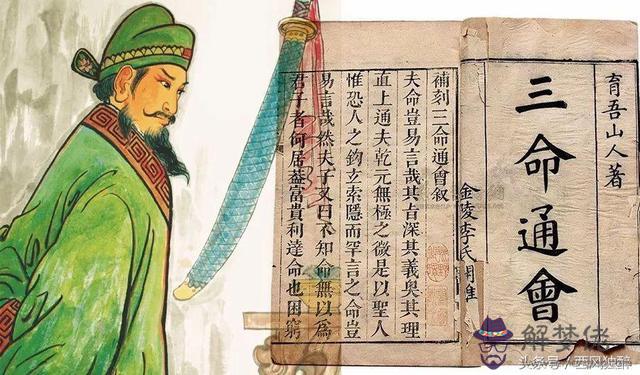 育吾山人著
三命通會
金陵李氏
補刻三命通會叙
夫命豈易言哉其旨深其義奥其理
直上通夫乾元無極之微是以聖人
惟恐人之鈎玄索隱而罕言之命豈
易言哉然夫子又曰不知命無以爲
君子者何居葢富貴利達命也困窮
解梦佬
头条号 / 西风独醉